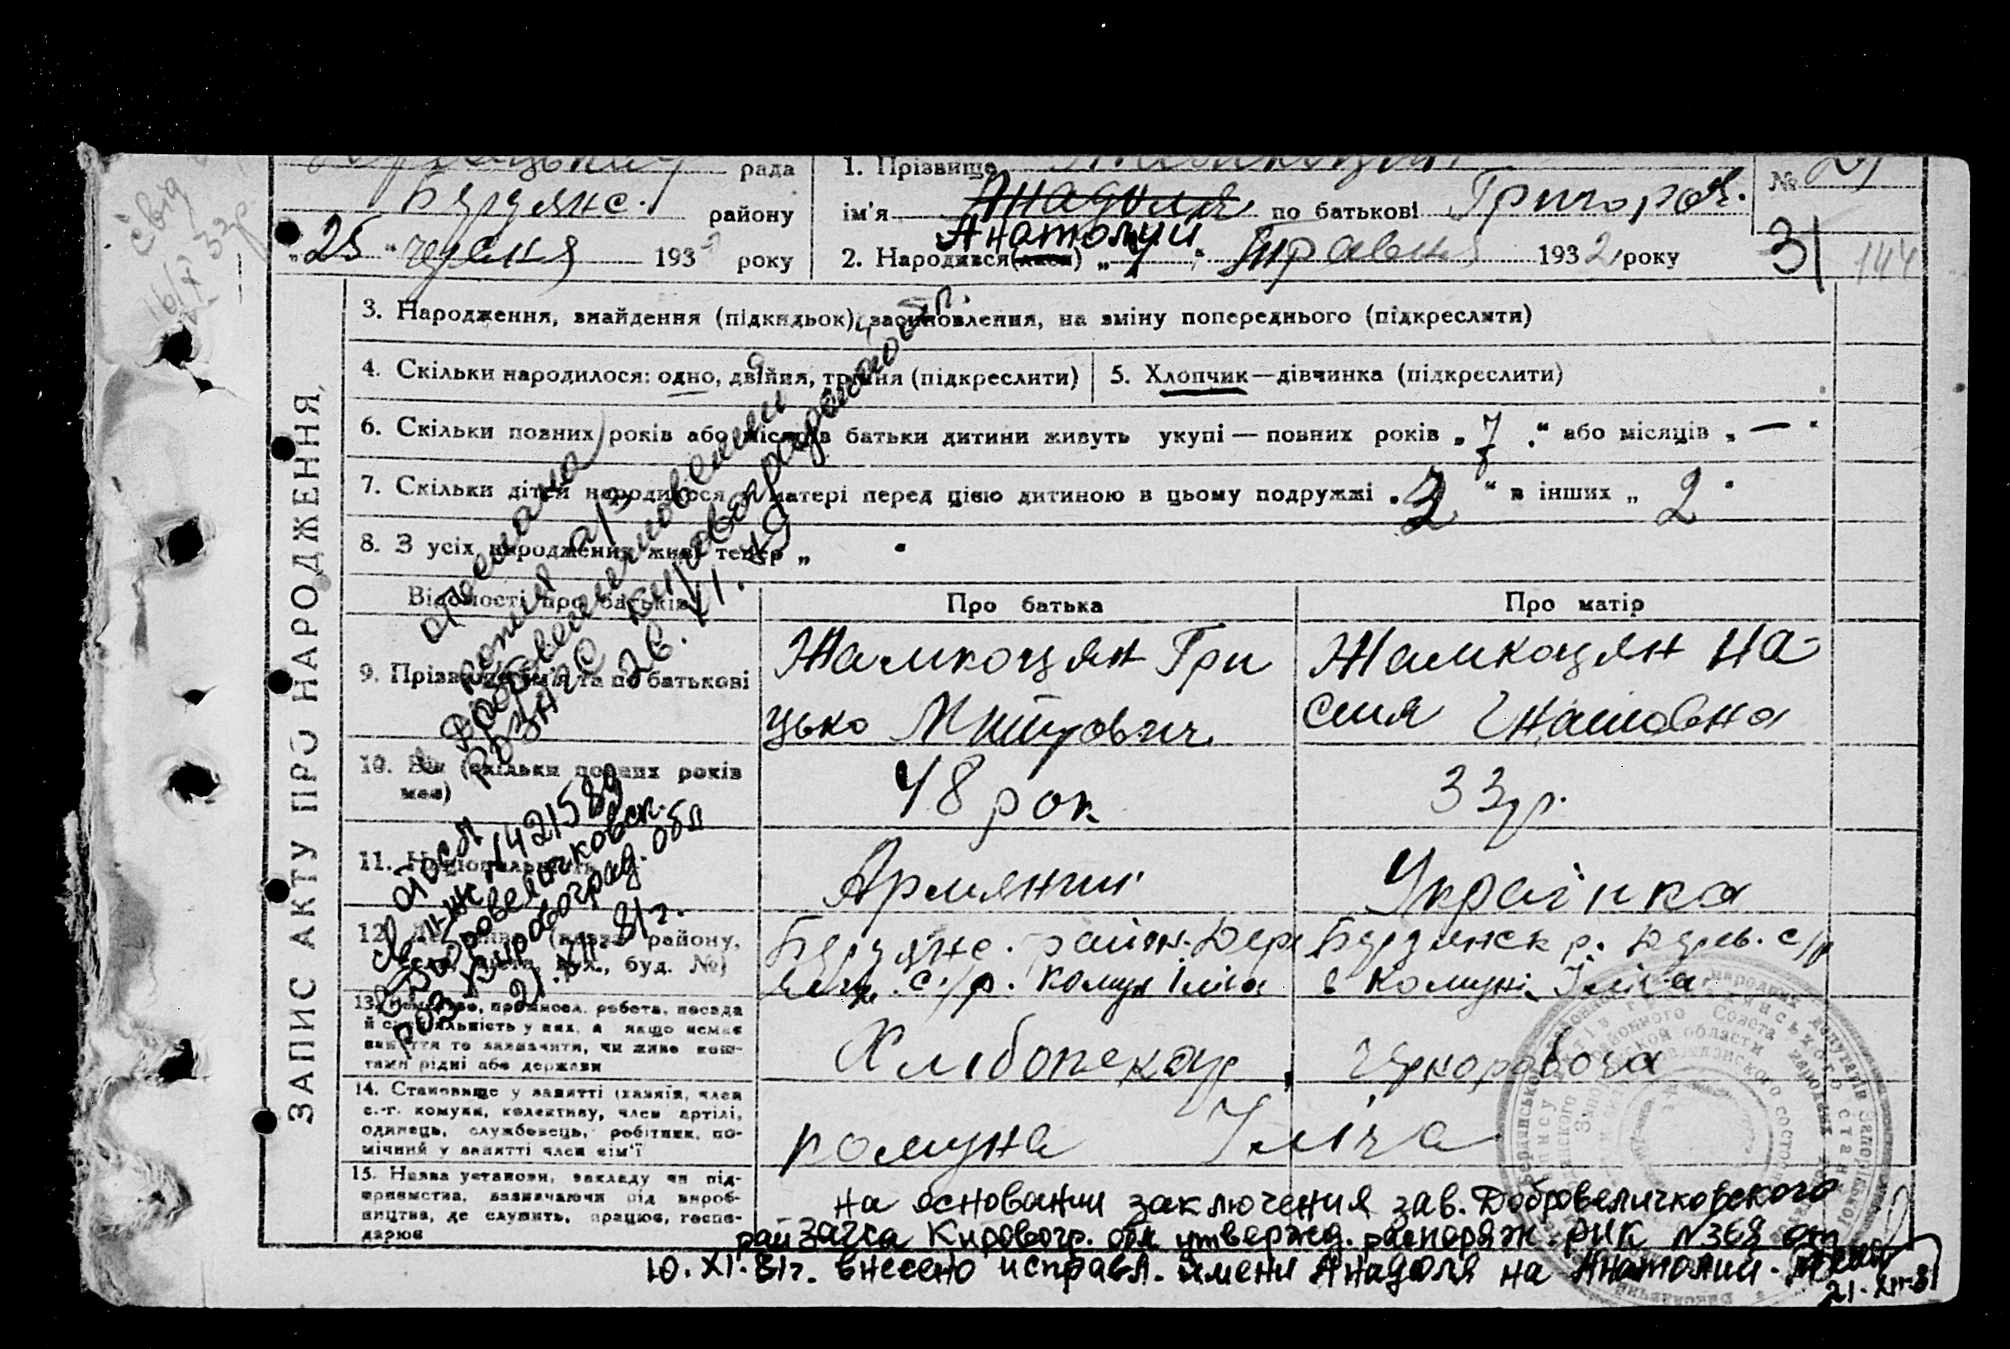 рада
Бердянс.
району
"25" червня 193 року
1. Прізвище
ім'я Анадоля по батькові Григоров.
Анатолий
2. Народився "7" Травня 1932 року
№
31
144
ЗАПИС АКТУ ПРО НАРОДЖЕННЯ,
3. Народження, знайдення (підкидьок), засиновлення, на зміну попереднього (підкреслити)
4. Скільки народилося: одно, двійня, тройня (підкреслити)
5. Хлопчик—дівчинка (підкреслити)
6. Скільки повних років або місяців батьки дитини живуть укупі — повних років „7" або місяців „—"
7. Скільки дітей народилося у матері перед цією дитиною в цьому подружжі „ " в інших „2"
8. З усіх народжених живі тепер „
Відомості про батьків
Про батька
Про матір
9. Прізвище, ім'я та по батькові
Жамкоцян Гри
цько
Жамкоцян На
стя Гнатовна
10. Вік (скільки повних років має)
48 рок
33 р.
11. Національність
Армянин
Українка
12. район. району, буд. №)
Бердянс. район.
с/р. комун Ілліча
Бердянск р. с/р
в комуні Ілліча
13. промисел, робота, посада
й спеціяльність у них, а якщо немає
заняття то зазначити, чи живе кош-
тами рідні або держави
Хлібопекар
14. Становище у занятті (хазяїн, член
с.-г. комуни, колективу, член артілі,
одинець, службовець, робітник, по-
мічний у занятті член сім'ї
комуна Ілліча
15. Назва установи, закладу чи під-
приємства, зазначаючи рід вироб-
ництва, де служить, працює, госпо-
дарює
отослана
копия а/з
в Добровеличковский
РБЗАГС Кировоградской обл.
26.XI.49
отосл
1421589
в Добровеличковск.
РОЗ Кировоград. обл
21.XII.81г.
На основании заключения зав. Добровеличковского
райзагса Кировогр. обл утвержд. распоряж. РИК №368 от
10.XI.81г. внесено исправл. имени Анадоля на Анатолий.
21.XII.81